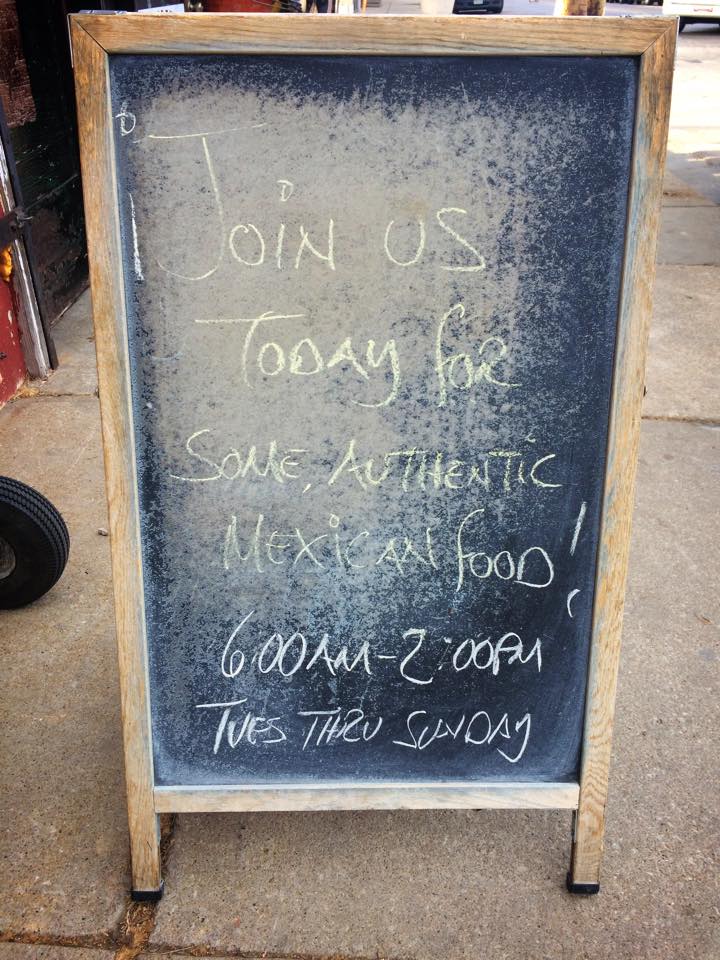 ¡Join us
Today for
Some, Authentic
Mexican food!
6:00AM-2:00PM
Tues Thru Sunday